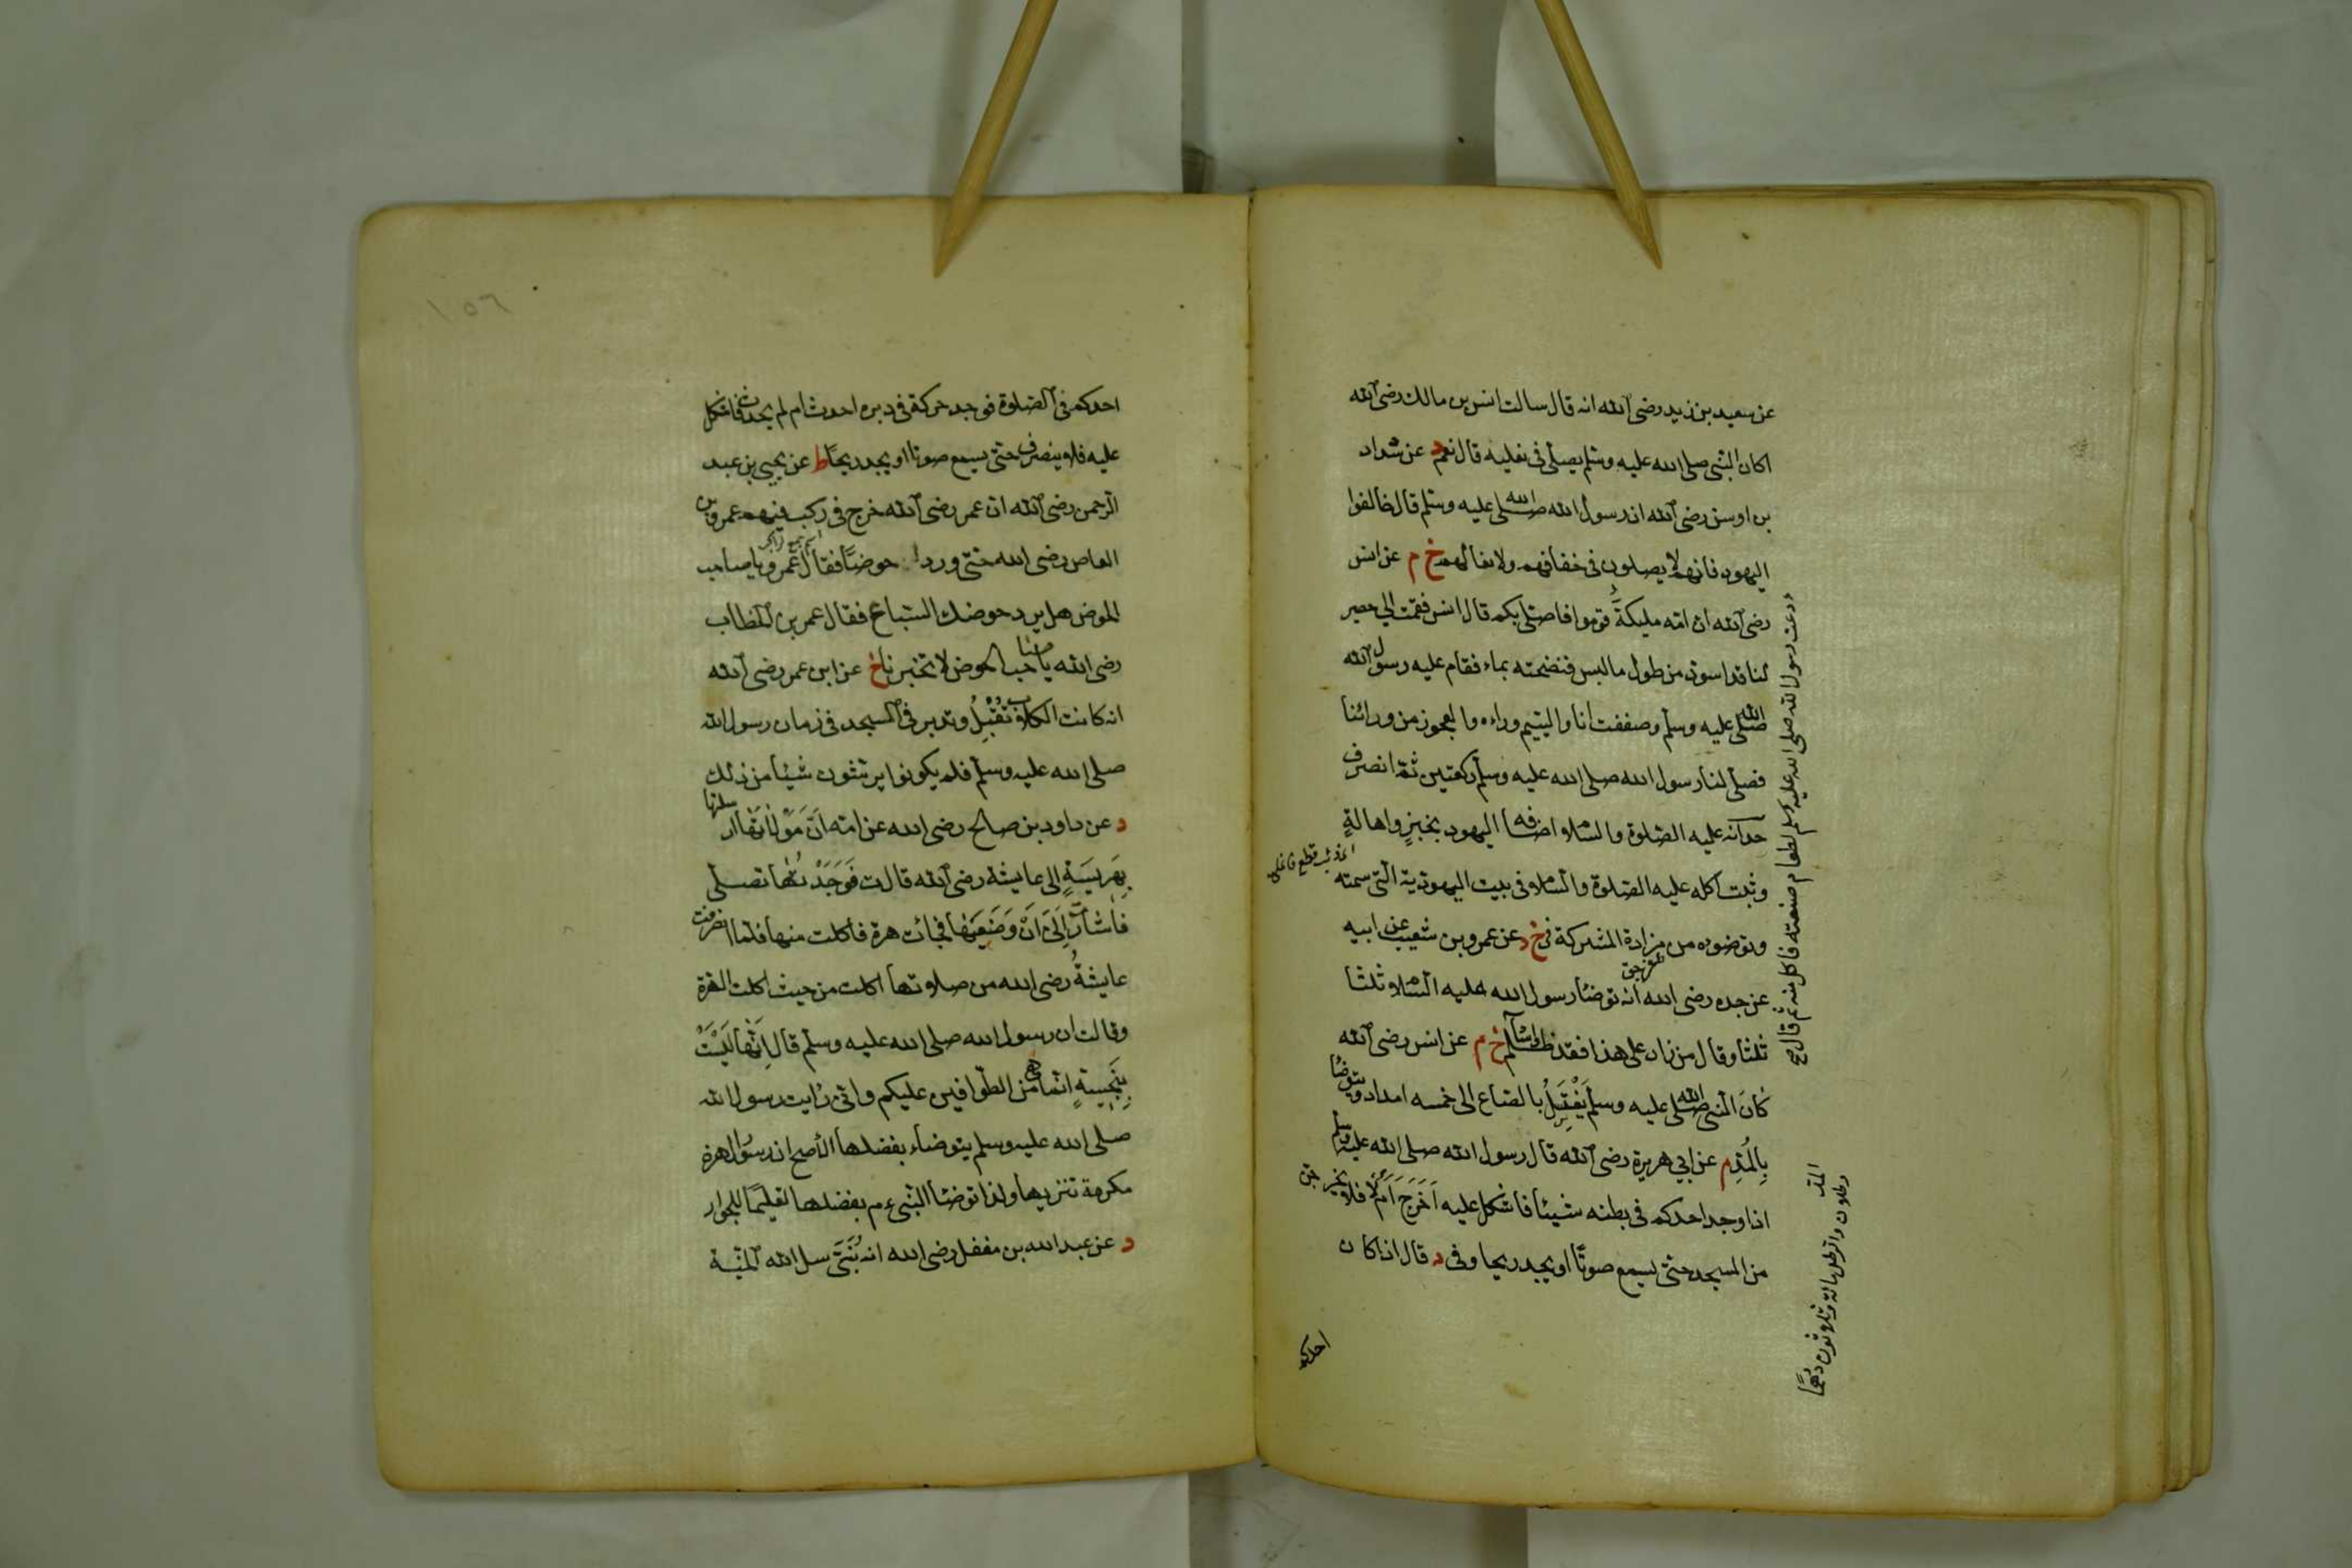 عن سعيد بن زيد رضى الله انه قال سالت انس بن مالك رضى الله
اكان النبى صلى الله عليه وسلم يصلى فى نعليه قال نعم د عن شداد
بن اوس رضى الله ان رسول الله صلى الله عليه وسلم قال خالفوا
اليهود فانهم لا يصلون فى خفافهم ولا نعالهم خ م عن انس
رضى الله ان امه مليكة قوموا فاصلى بكم قال انس فقمت الى حصير
لنا قد اسود من طول ما لبس فنضحته بماء فقام عليه رسول الله
صلى الله عليه وسلم وصففت انا واليتيم وراءه والعجوز من ورائنا
فصلى لنا رسول الله صلى الله عليه وسلم ركعتين ثم انصرف
حد انه عليه الصلوة والسلام اضافه اليهود بخبز واهالة
وثبت اكله عليه الصلوة والسلام فى بيت اليهودية التى سمته
وتوضوءه من مزادة المشركة فى خ د عن عمرو بن شعيب عن ابيه
عن جده رضى الله انه توضأ رسول الله عليه السلام ثلثا
ثلثا وقال من زاد على هذا فقد ظلم واساء خ م عن انس رضى الله
كان النبى صلى الله عليه وسلم يغتسل بالصاع الى خمسه امداد ويتوضأ
بالمد م عن ابى هريرة رضى الله قال رسول الله صلى الله عليه وسلم
اذا وجد احدكم فى بطنه شيئا فاشكل عليه اخرج ام لا فلا يخرجن
من المسجد حتى يسمع صوتا او يجد ريحا وفى د قال اذا كان
احدكم
ودعت رسول الله صلى الله عليه وسلم لطعام صنعته فاكل منه ثم قال صح
المد رطلان والرطل مائة وثلاثون درهما
١٥٦
احدكم فى الصلوة فوجد حركة فى دبره احدث ام لم يحدث فاشكل
عليه فلا ينصرف حتى يسمع صوتا او يجد ريحا ط عن يحيى بن عبد
الرحمن رضى الله ان عمر رضى الله خرج فى ركب فيهم عمرو بن
العاص رضى الله حتى وردا حوضا فقال عمرو يا صاحب
الحوض هل يرد حوضك السباع فقال عمر بن الخطاب
رضى الله يا صاحب الحوض لا تخبرنا خ عن ابن عمر رضى الله
انه كانت الكلاب تقبل وتدبر فى المسجد فى زمان رسول الله
صلى الله عليه وسلم فلم يكونوا يرشون شيئا من ذلك
د عن داود بن صالح رضى الله عن امه ان مولاتها ارسلتها
بهريسة الى عايشة رضى الله قالت فوجدتها تصلى
فاشارت الى ان وضعيها فجائت هرة فاكلت منها فلما انصرفت
عايشة رضى الله من صلاوتها اكلت من حيث اكلت الهرة
وقالت ان رسول الله صلى الله عليه وسلم قال انها ليست
بنجسة انما هى من الطوافين عليكم وانى رايت رسول الله
صلى الله عليه وسلم يتوضاء بفضلها الاصح ان سؤر الهرة
مكرهة تنزيها ولذا توضأ النبى ع م بفضلها تعليما للجواز
د عن عبد الله بن مغفل رضى الله انه بنى سل الله الجنة